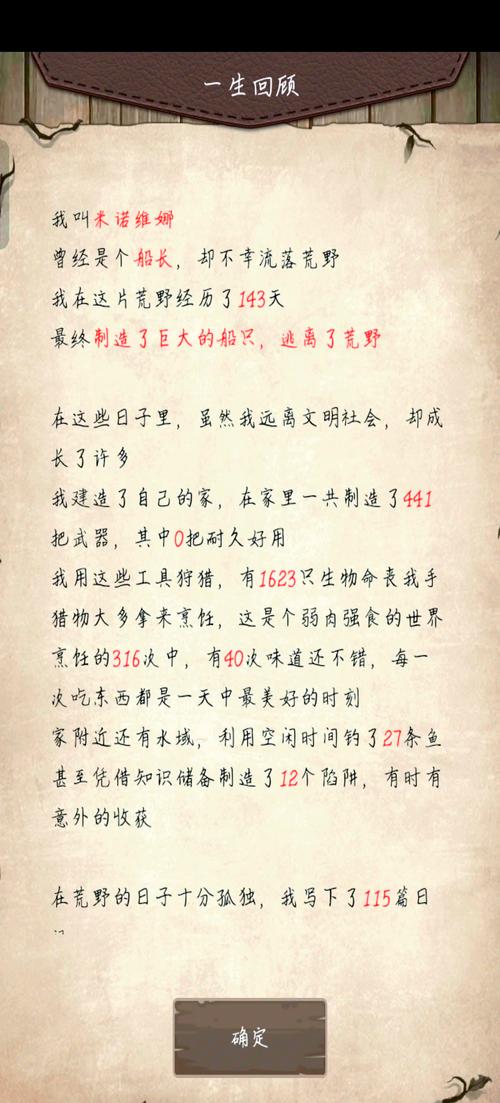 一生回顾
我叫米诺维娜
曾经是个船长，却不幸流落荒野
我在这片荒野经历了143天
最终制造了巨大的船只，逃离了荒野
在这些日子里，虽然我远离文明社会，却成
长了许多
我建造了自己的家，在家里一共制造了441
把武器，其中0把耐久好用
我用这些工具狩猎，有1623只生物命丧我手
猎物大多拿来烹饪，这是个弱肉强食的世界
烹饪的316次中，有40次味道还不错，每一
次吃东西都是一天中最美好的时刻
家附近还有水域，利用空闲时间钓了27条鱼
甚至凭借知识储备制造了12个陷阱，有时有
意外的收获
在荒野的日子十分孤独，我写下了115篇日
确定